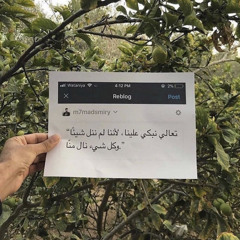 Wataniya 4:12 PM 2%
Reblog Post
m7madsmiry
"تعالي نبكي علينا، لأننا لم ننل شيئًا
وكل شيء نال منّا."